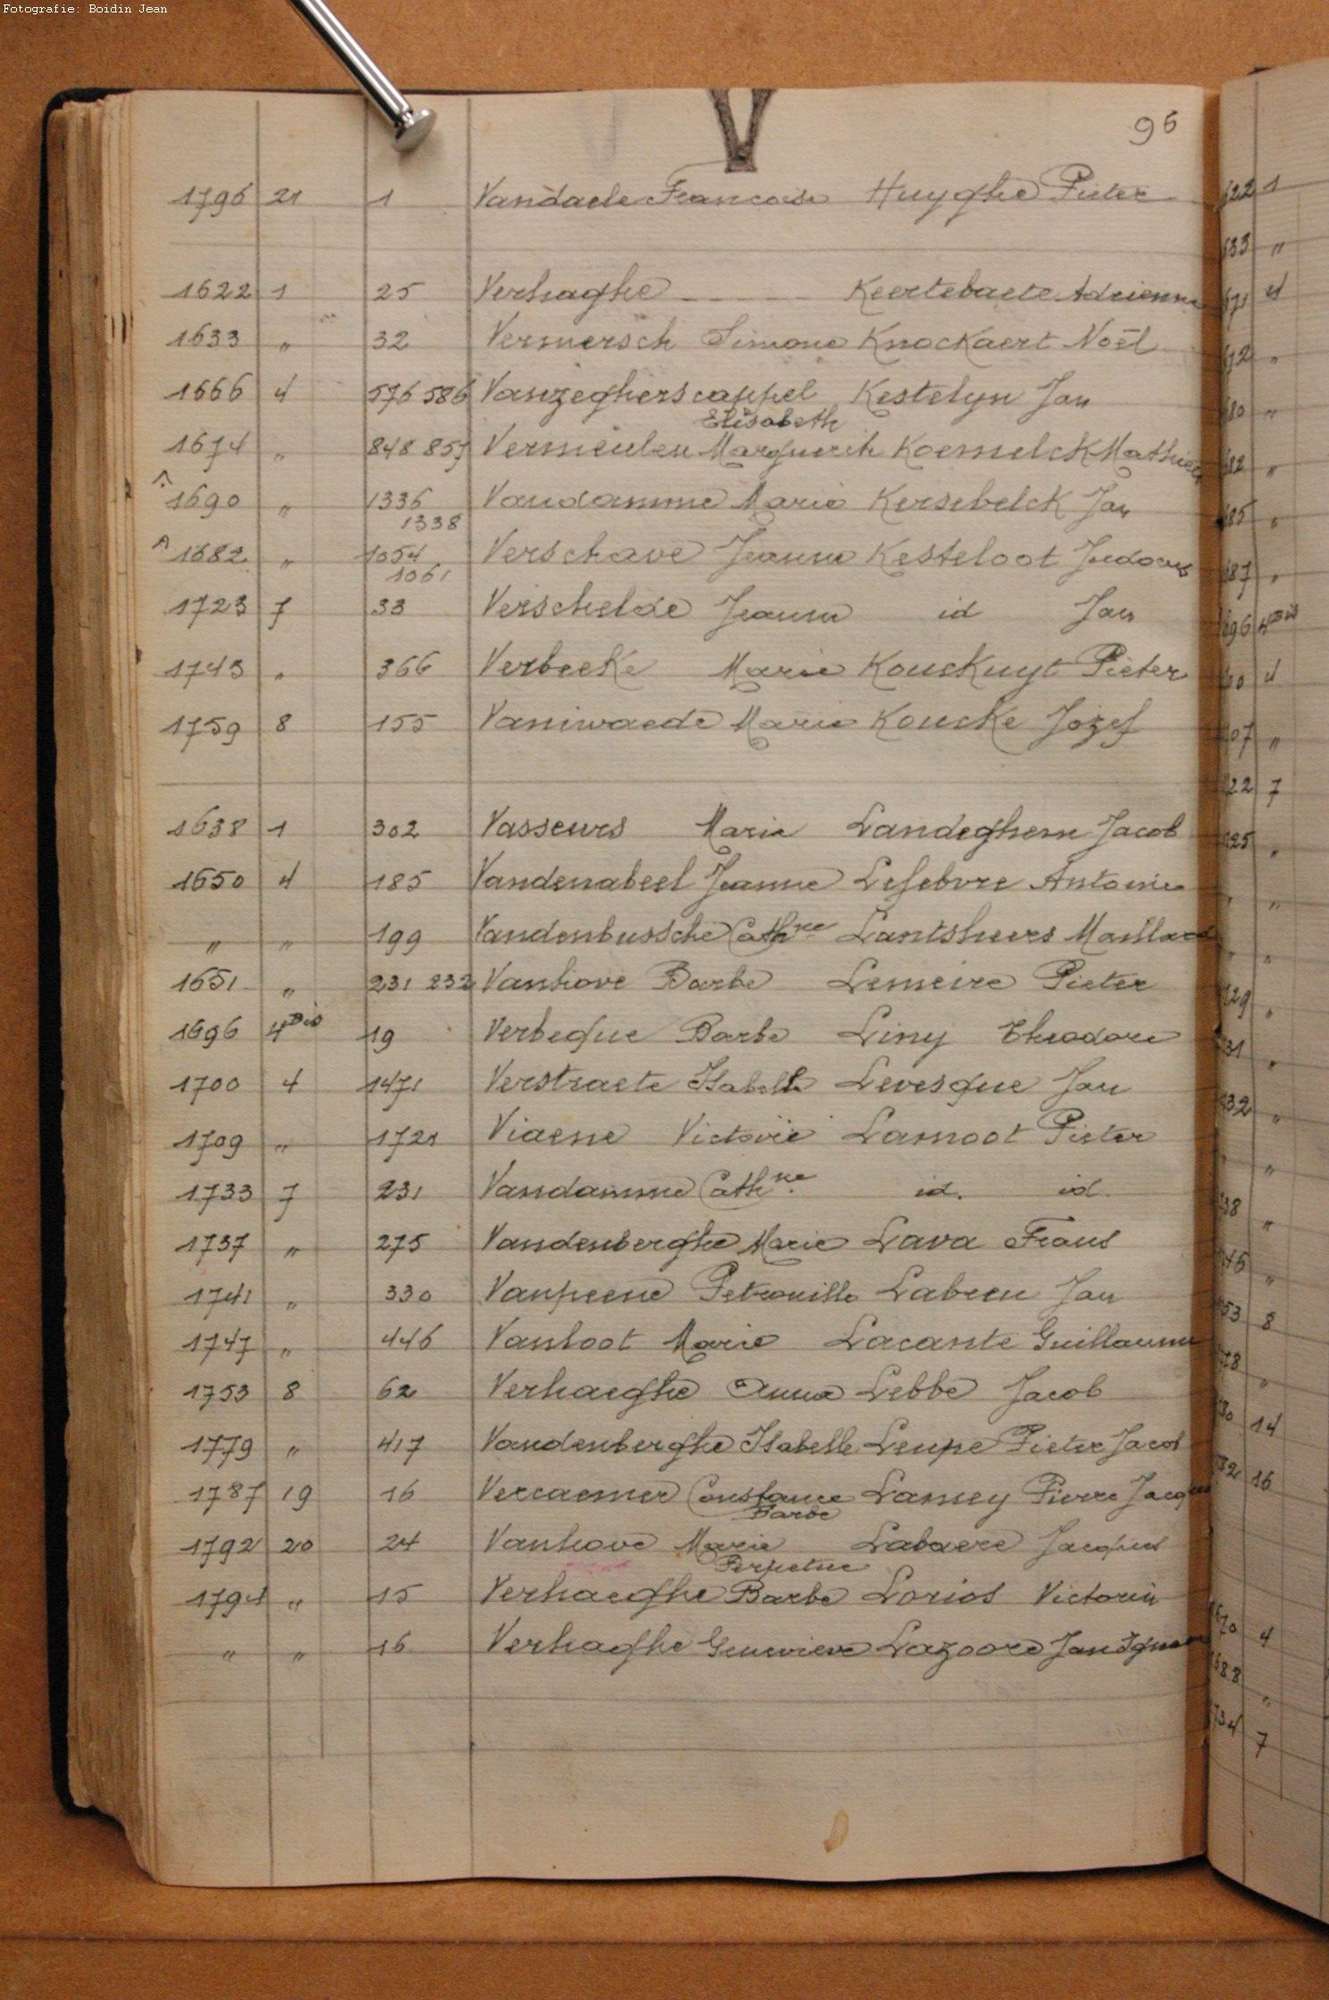 Fotografie: Boidin Jean
96
1796 21 1 Vandaele Francoise Huyghe Pieter
1622 1 25 Verhaghe - - - - Keertebaete Adrienne
1633 " 32 Vermersch Simone Knockaert Noël
1666 4 576 586 Vanzegherscappel Kestelyn Jan
Elisabeth
1674 " 848 857 Vermeulen Marguerite Koemelck Mathieu
1690 " 1336 Vandamme Marie Kersebelck Jan
1338
1682 " 1054 Verschave Jeanne Kesteloot Judocus
1061
1723 7 33 Verschelde Jeanne id Jan
1743 " 366 Verbecke Marie Kouckuyt Pieter
1759 8 155 Vaniwaede Marie Koucke Jozef
1638 1 302 Vasseurs Marie Landeghem Jacob
1650 4 185 Vandenabeel Jeanne Lefebvre Antoine
" " 199 Vandenbussche Cathne Lantsheers Maillard
1651 " 231 232 Vanhove Barbe Lemeire Pieter
1696 4Bis 19 Verbeque Barbe Liny Theodore
1700 4 1471 Verstraete Isabelle Levesque Jan
1709 " 1721 Viaene Victorie Lamoot Pieter
1733 7 231 Vandamme Cathne id. id.
1737 " 275 Vandenberghe Marie Lava Frans
1741 " 330 Vanpeene Petronille Labeeu Jan
1747 " 446 Vanloot Marie Lacante Guillaume
1753 8 62 Verhaeghe Anna Lebbe Jacob
1779 " 417 Vandenberghe Isabelle Leupe Pieter Jacob
1787 19 16 Vercaemer Constance Lamey Pierre Jacques
Barbe
1792 20 24 Vanhove Marie Labaere Jacques
Perpetue
1794 " 15 Verhaeghe Barbe Lorios Victorin
" " 16 Verhaghe Genevieve Lazoore Jan